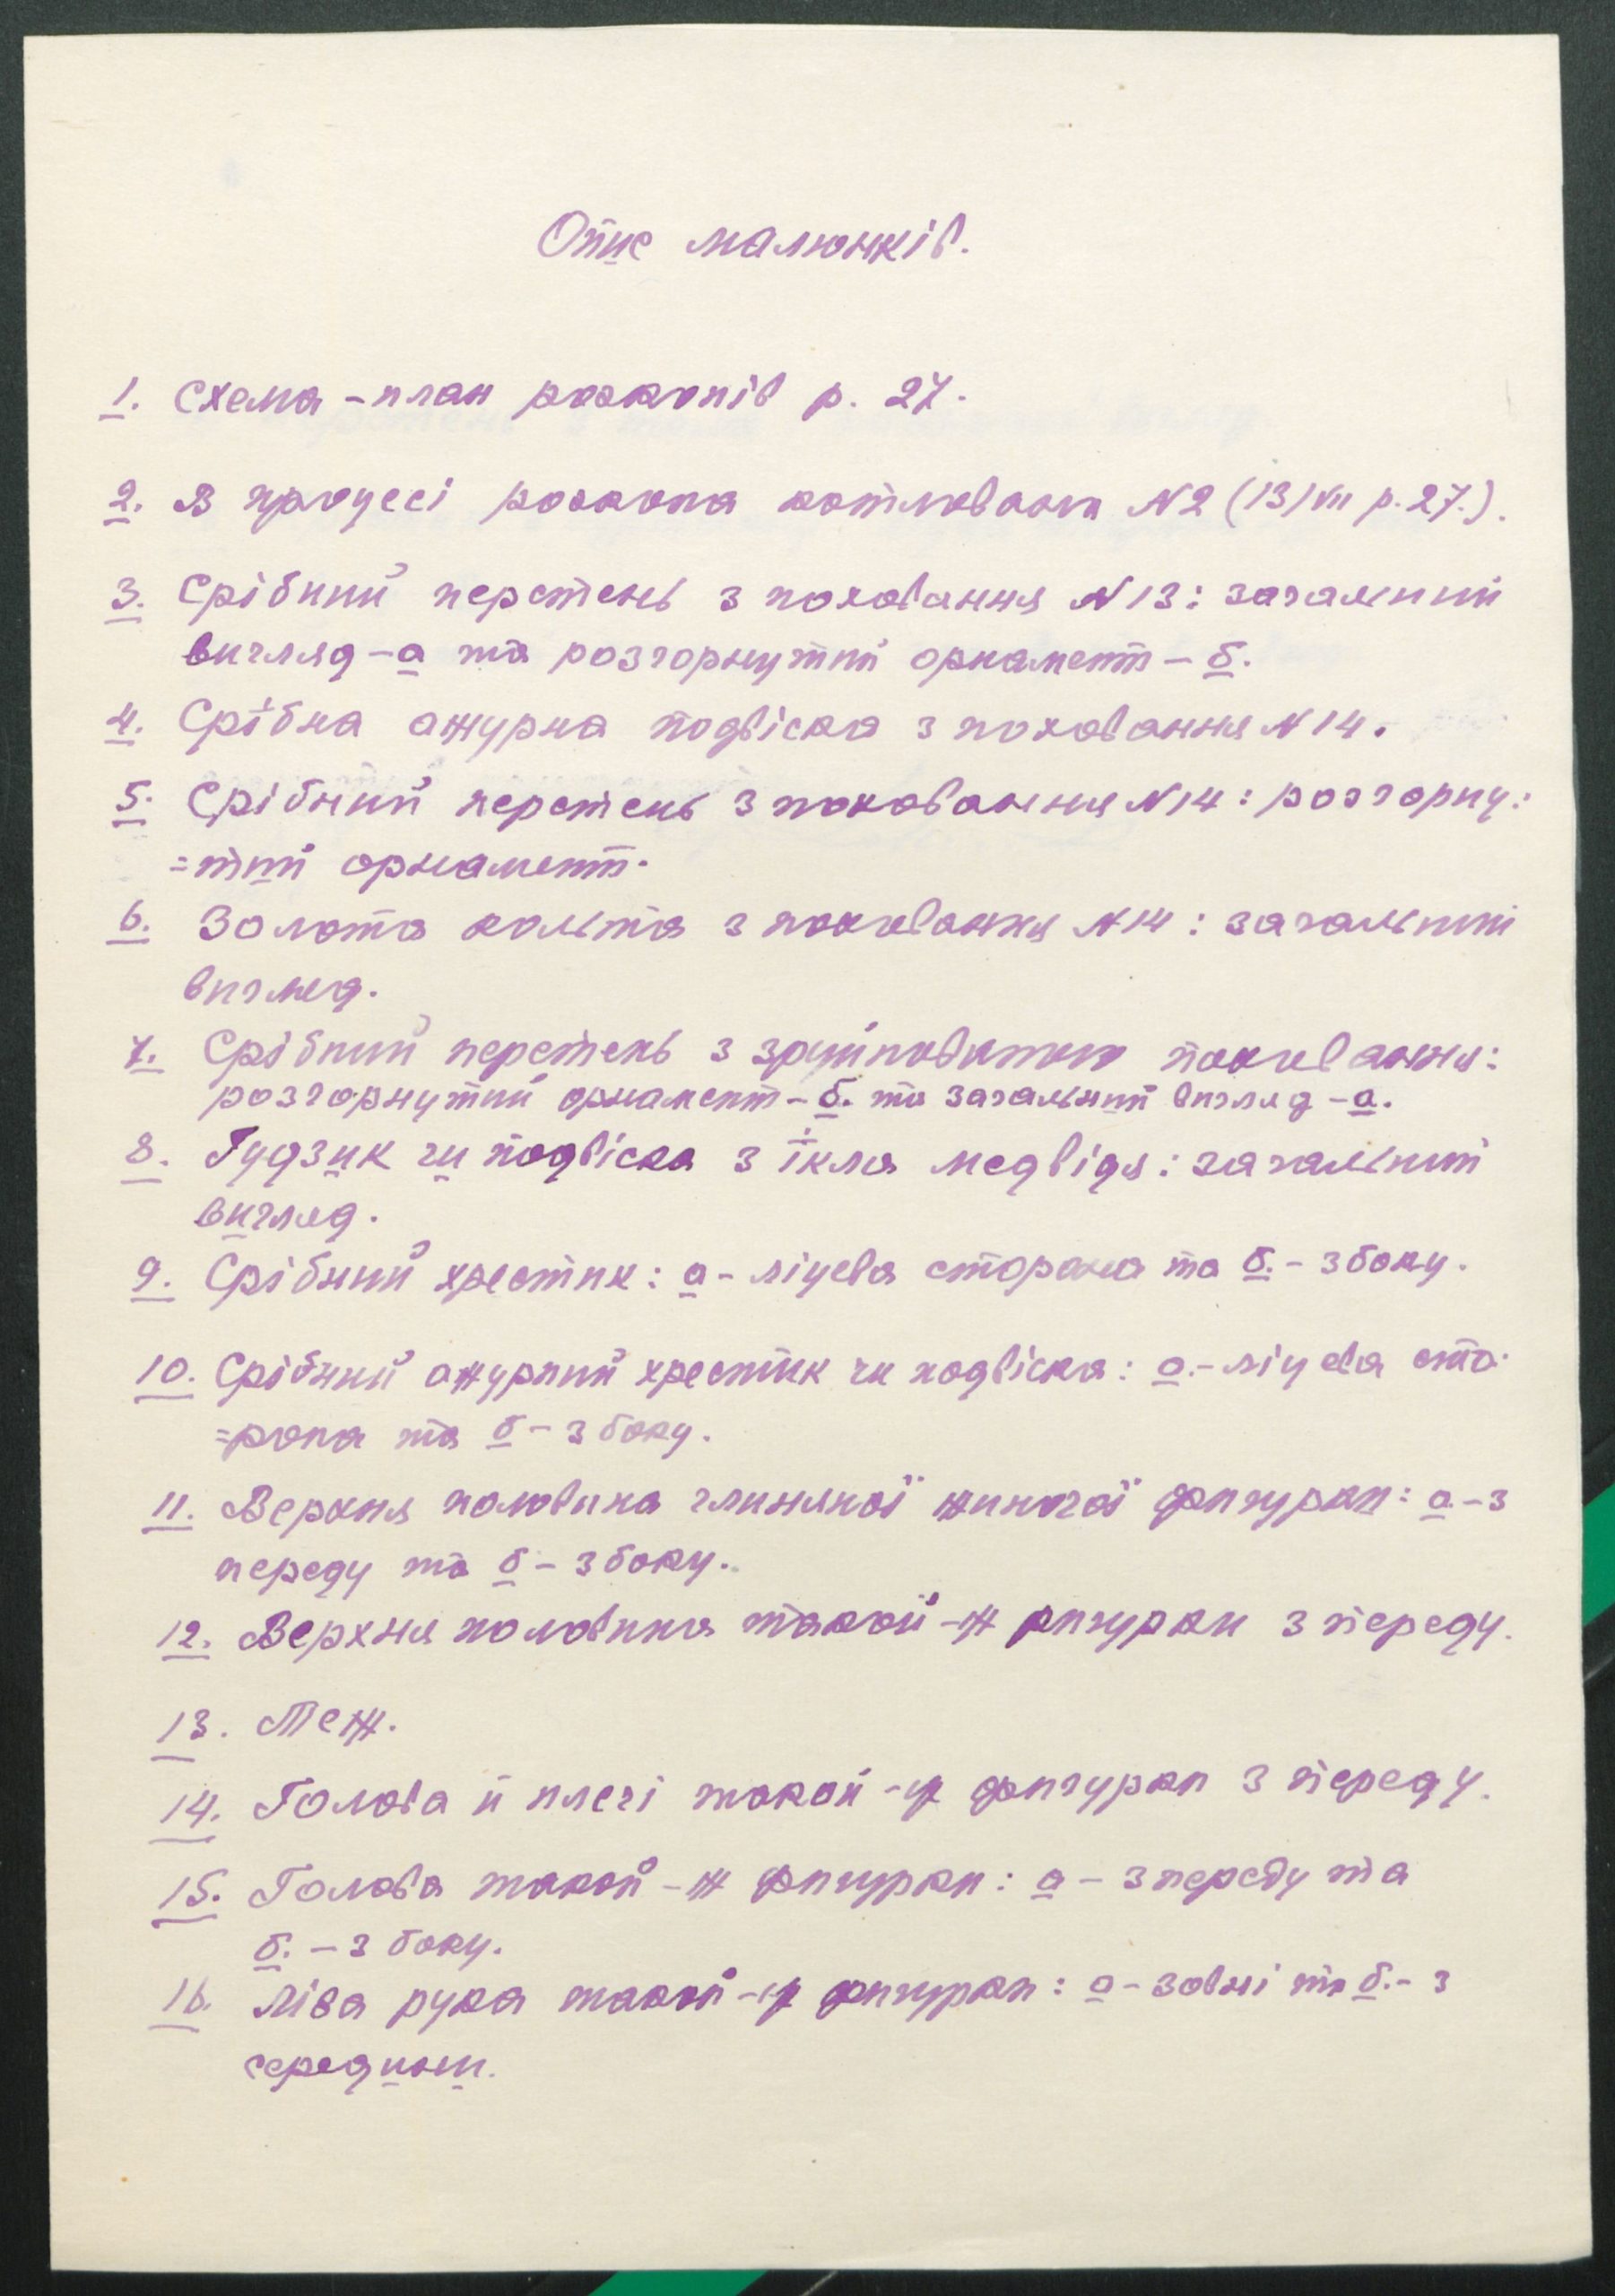 Опис малюнків.
1. Схема-план розкопів р. 27.
2. В процесі розкопа котлована №2 (13/VII р. 27.).
3. Срібний перстень з поховання №13: загальний
вигляд-а та розгорнутий орнамент-б.
4. Срібна ажурна подвіска з поховання №14.
5. Срібний перстень з поховання №14: розгорну:
=тий орнамент.
6. Золота кольта з поховання №14: загальний
вигляд.
7. Срібний перстень з зруйнованого поховання:
розгорнутий орнамент-б. та загальний вигляд-а.
8. Гудзик чи подвіска з ікла медвідя: загальний
вигляд.
9. Срібний хрестик: а-ліцева сторона та б.-збоку.
10. Срібний ажурний хрестик чи подвіска: а.-ліцева сто-
=рона та б-з боку.
11. Верхня половина глиняної жиночої фигурки: а-з
переду та б-збоку.
12. Верхня половина такой-ж фигурки з переду.
13. Теж.
14. Голова й плечі такой-ж фигурки з переду.
15. Голова такой-ж фигурки: а-з переду та
б.-з боку.
16. Ліва рука такой-ж фигурки: а-зовні та б.-з
середини.